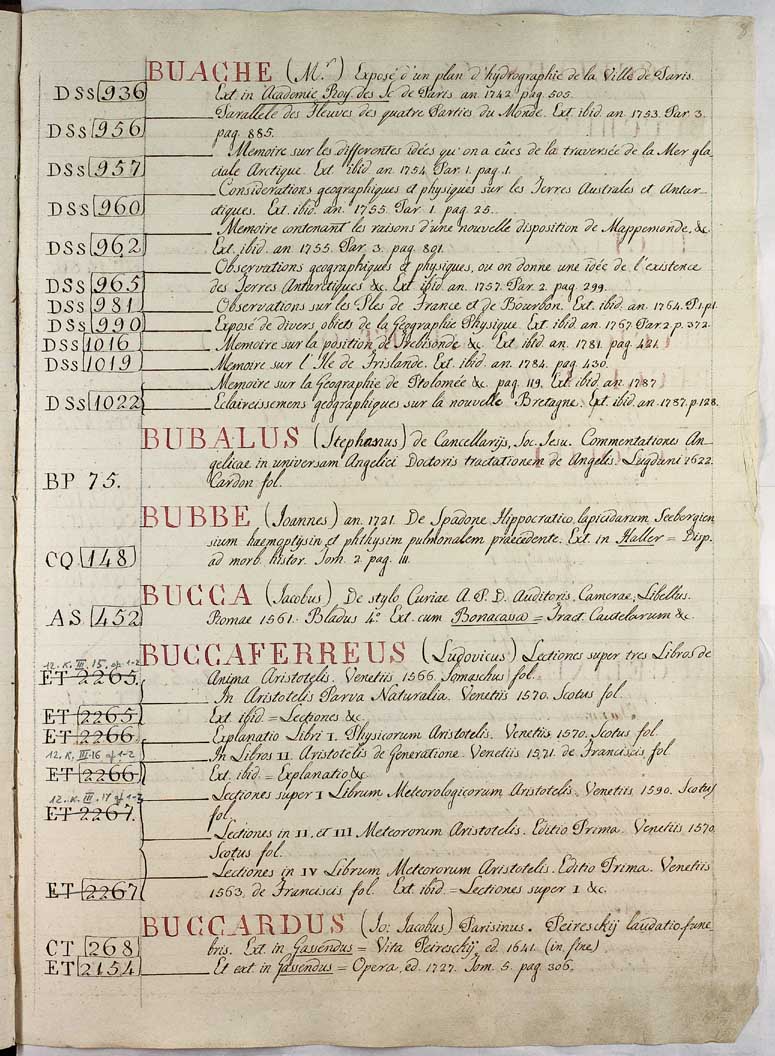 8
BUACHE (M.r) Exposé d'un plan d'hydrographie de la Ville de Paris.
DSs 936 Ext in Academie Roy. des Sc de Paris an 1742 pag 505.
Parallele des Fleuves des quatre Parties du Monde. Ext ibid. an. 1753. Par. 3.
DSs 956 pag. 885.
Memoire sur les differentes idées qu'on a eûes de la traversée de la Mer gla
DSs 957 ciale Arctique. Ext ibid an 1754. Par. 1. pag. 1.
Considerations geographiques et physiques sur les Terres Australes et Antar_
DSs 960 ctiques. Ext. ibid. an. 1755. Par. 1. pag. 25.
Memoire contenant les raisons d'une nouvelle disposition de Mappemonde, &c
DSs 962 Ext. ibid. an 1755. Par. 3. pag. 801.
Observations geographiques et physiques, ou on donne une idée de l'existence
DSs 965 des Terres Antarctiques &c. Ext ibid an. 1757. Par. 2. pag. 299.
DSs 981 Observations sur les Isles de France et de Bourbon. Ext. ibid. an. 1764. P.1.p.1.
DSs 990 Exposé de divers objets de la Géographie Physique. Ext. ibid. an. 1767. Par 2. p. 372.
DSs 1016 Memoire sur la position de Trebisonde &c. Ext ibid. an. 1781. pag. 421.
DSs 1019 Memoire sur l'Ile de Frislande. Ext. ibid. an. 1784. pag. 430.
Memoire sur la Géographie de Ptolomée &c. pag. 119. Ext. ibid. an. 1787.
DSs 1022 Eclaireissemens géographiques sur la nouvelle Bretagne. Ext. ibid. an. 1787. p. 128.
BUBALUS (Stephanus) de Cancellarijs, Soc. Jesu. Commentationes An_
gelicae in universam Angelici Doctoris tractationem de Angelis. Lugduni 1622.
BP 75. Cardon fol.
BUBBE (Ioannes) an. 1721. De Spadone Hippocratico, lapicidarum Seebergien
sium haemoptysin et phthysim pulmonalem praecedente. Ext. in Haller = Disp.
CQ 148 ad morb. histor. Tom. 2. pag. 111.
BUCCA (Iacobus) De stylo Curiae A. P. D. Auditoris Camerae, Libellus.
AS 452 Romae 1561. Bladus 4.o Ext. cum Bonacassa = Tract. Cautelarum &c.
BUCCAFERREUS (Ludovicus) Lectiones super tres Libros de
12. K. III. 15. of 1-2
ET 2265. Anima Aristotelis. Venetiis 1566. Somaschus fol.
In Aristotelis Parva Naturalia. Venetiis 1570. Scotus fol.
ET 2265 Ext. ibid = Lectiones &c.
ET 2266 Explanatio Libri I. Physicorum Aristotelis. Venetiis 1570. Scotus fol.
12. K. III. 16 of 1-2 In Libros II. Aristotelis de Generatione. Venetiis 1571. de Franciscis, fol.
ET 2266 Ext. ibid. = Explanatio &c.
12. K. III. 17 of 1-2 Lectiones super I Librum Meteorologicorum Aristotelis. Venetiis 1590. Scotus
ET 2267. fol.
Lectiones in II, et III Meteororum Aristotelis. Editio Prima. Venetiis 1570.
Scotus fol.
Lectiones in IV Librum Meteororum Aristotelis. Editio Prima. Venetiis
ET 2267 1563, de Franciscis fol. Ext. ibid. = Lectiones super I &c.
BUCCARDUS (Jo: Jacobus) Parisinus. Peiresckij laudatio fune
CT 268 bris. Ext. in Gassendus = Vita Peiresckij, ed. 1641. (in fine)
ET 2154 Et ext in Gassendus = Opera, ed. 1727. Tom. 5. pag. 306.